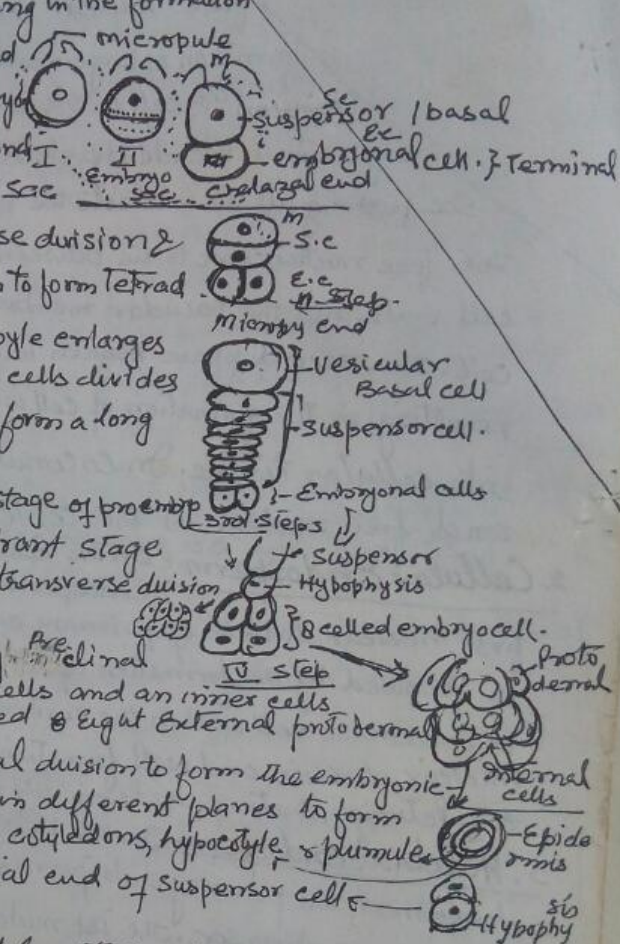 ng in the formation
micropule
m
Sc
Suspensor / basal
Ec
embryonal cell. } Terminal
I II
Embryo
Sac
sac chalazal end
m
se duvision &
S.c
n to form Tetrad
E.c
II step.
Micropy end
yle enlarges
Vesicular
Basal cell
cells divides
form a long
suspensorcell.
Embryonal calls
stage of proembryo
3rd. steps
rant stage
suspensor
transverse duision
Hypophysis
8 celled embryocell.
Pre clinal
IV step
Proto
dermal
cells and an inner cells
ed Eigut External protodermal
al duision to form the embryonic
Internal
cells
in different planes to form
cotyledons, hypocotyle, & plumules
Epide
rmis
ial end of suspensor cells
Hypophy
sis